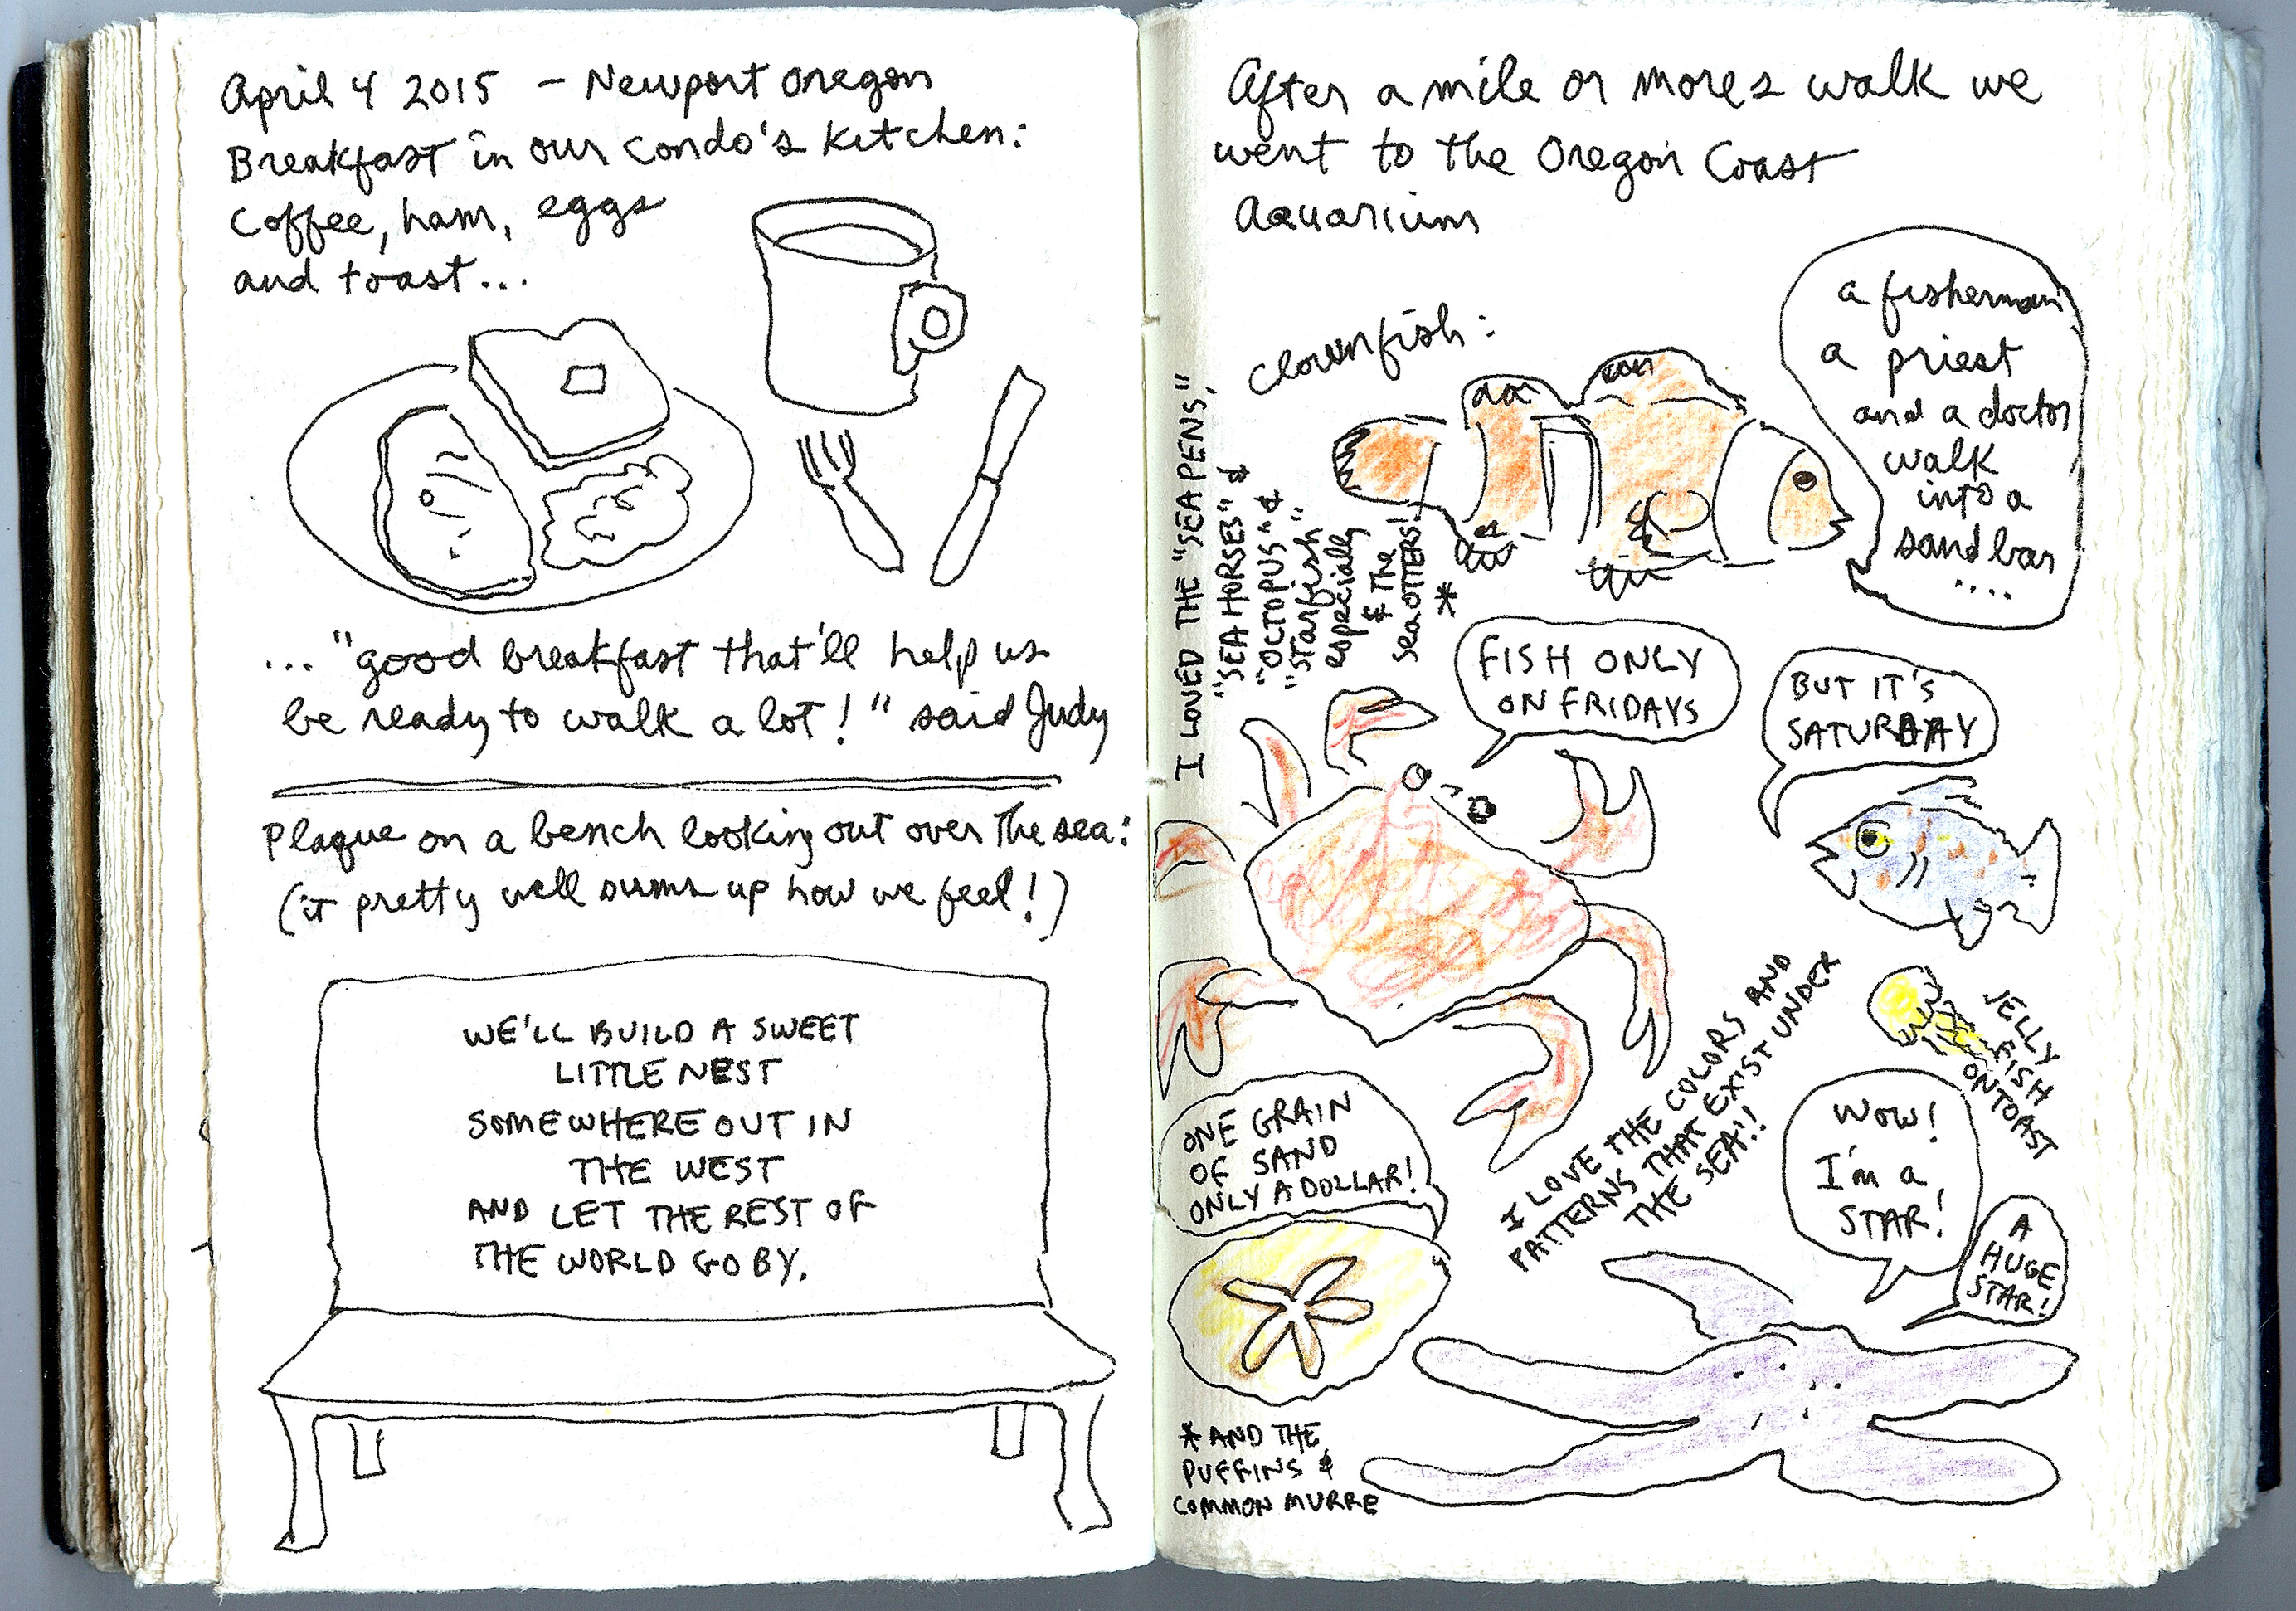 April 4 2015 – Newport Oregon
Breakfast in our condo's kitchen:
coffee, ham, eggs
and toast...
... "good breakfast that'll help us
be ready to walk a lot!" said Judy
Plaque on a bench looking out over the sea:
(it pretty well sums up how we feel!)
WE'LL BUILD A SWEET
LITTLE NEST
SOMEWHERE OUT IN
THE WEST
AND LET THE REST OF
THE WORLD GO BY.
After a mile or more's walk we
went to the Oregon Coast
Aquarium
clownfish:
a fisherman
a priest
and a doctor
walk
into a
sand bar
....
I LOVED THE "SEA PENS",
"SEA HORSES" &
"OCTOPUS" &
"Starfish"
especially
& The
sea OTTERS!
*
FISH ONLY
ON FRIDAYS
BUT IT'S
SATURDAY
JELLY
FISH
ON TOAST
I LOVE THE COLORS AND
PATTERNS THAT EXIST UNDER
THE SEA!!
ONE GRAIN
OF SAND
ONLY A DOLLAR!
WOW!
I'm a
STAR!
A
HUGE
STAR!
* AND THE
PUFFINS &
COMMON MURRE